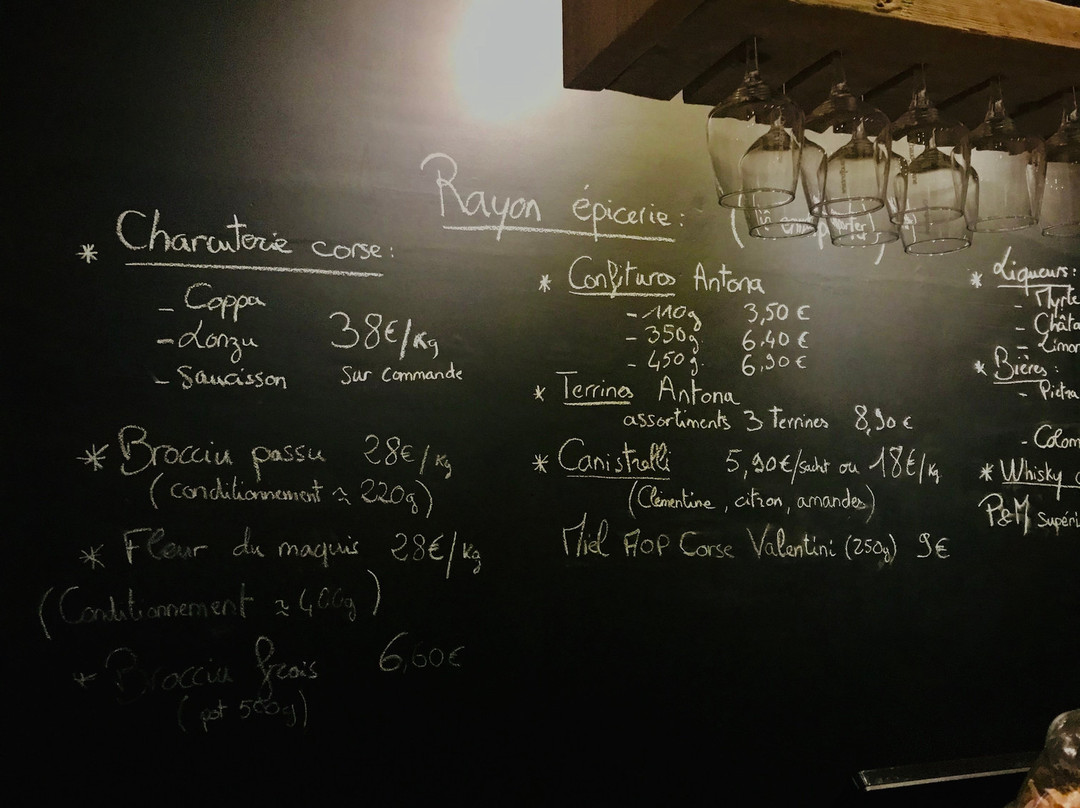 Rayon épicerie :
(à emporter)
* Charcuterie corse :
- Coppa
- Lonzu 38€/Kg
- Saucisson sur commande
* Brocciu passu 28€/Kg
(conditionnement ≈ 220g)
* Fleur du maquis 28€/Kg
(Conditionnement ≈ 400g)
* Brocciu frais 6,60€
(pot 500g)
* Confitures Antona
- 110g 3,50 €
- 350g. 6,40 €
- 450g. 6,90 €
* Terrines Antona
assortiments 3 Terrines 8,90 €
* Canistrelli 5,90€/sachet ou 18€/Kg
(Clémentine, citron, amandes)
Miel AOP Corse Valentini (250g) 9€
* Liqueurs :
- Myrte
- Châta
- Limon
* Bières :
- Pietra
- Colom
* Whisky
P&M Supéri